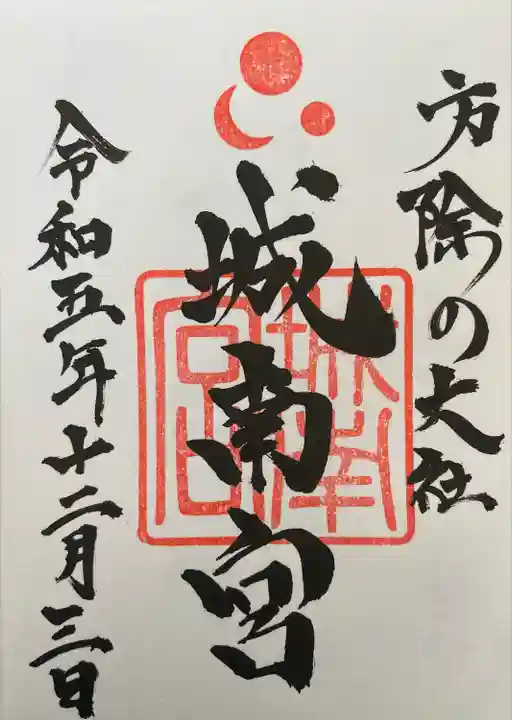 方除の大社
城南宮
令和五年十二月三日
城南
宮印